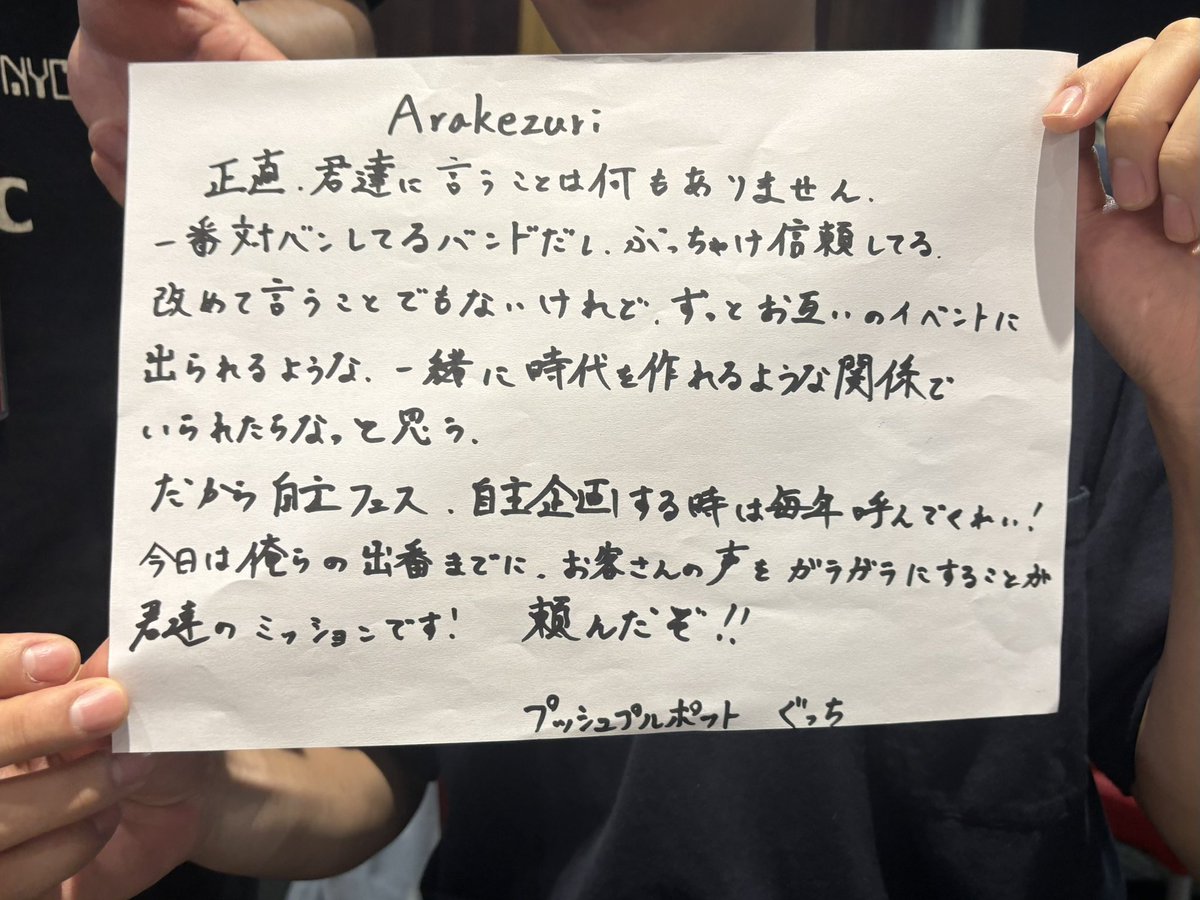 NYC
C
Arakezuri
正直、君達に言うことは何もありません。
一番対バンしてるバンドだし、ぶっちゃけ信頼してる。
改めて言うことでもないけれど、ずっとお互いのイベントに
出られるような、一緒に時代を作れるような関係で
いられたらなっと思う。
だから自主フェス、自主企画する時は毎年呼んでくれい!
今日は俺らの出番までに、お客さんの声をガラガラにすることが
君達のミッションです! 頼んだぞ!!
プッシュプルポット ぐっち